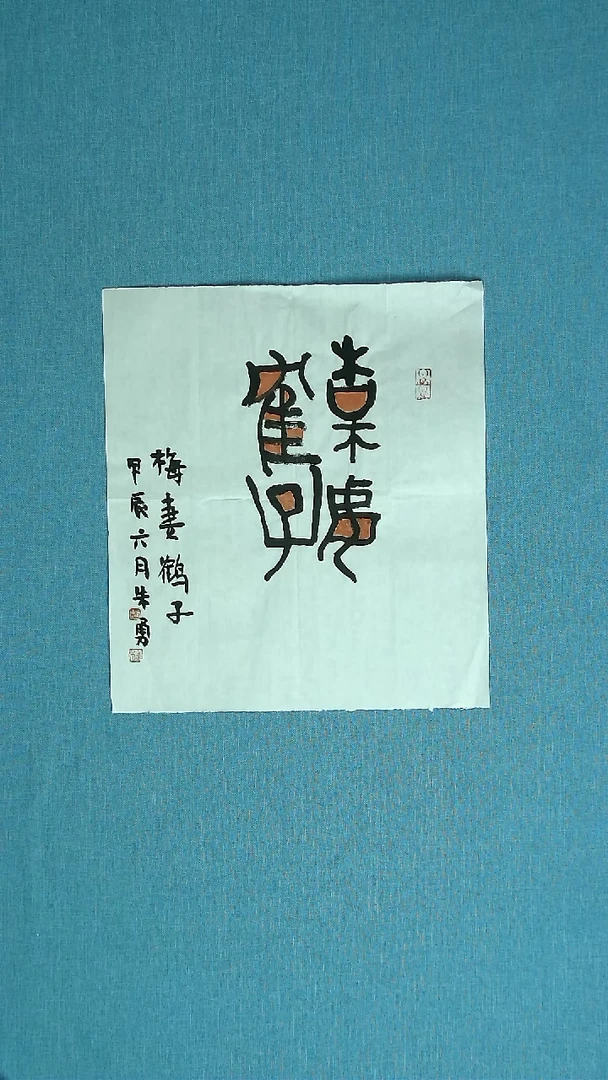 梅妻
鹤子
梅妻鹤子
甲辰六月朱勇